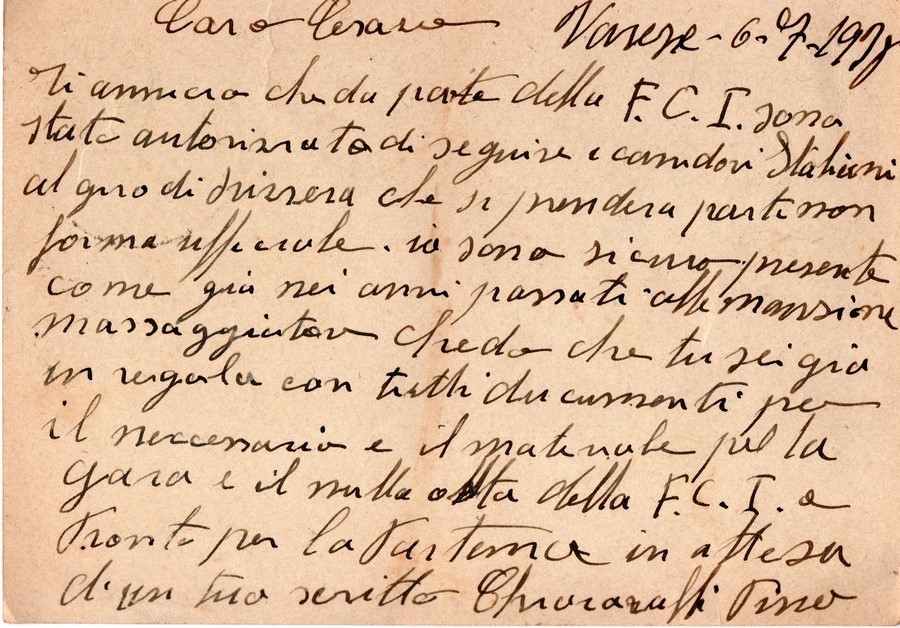 Caro Cesare Varese - 6-7-1938
Ti annucio che da parte della F. C. I. sono
stato autorizzato di seguire i corridori Italiani
al giro di Svizzera che si prendera parte non
forma ufficiale. io sono sicuro presente
come già nei anni passati alle mansione
massaggiatore chedo che tu sei gia
in regola con tutti ducumenti per
il neccessario e il materiale pel la
gara e il nulla osta della F.C.I. e
Pronto per la Partenza in attesa
di un tuo scritto Pino